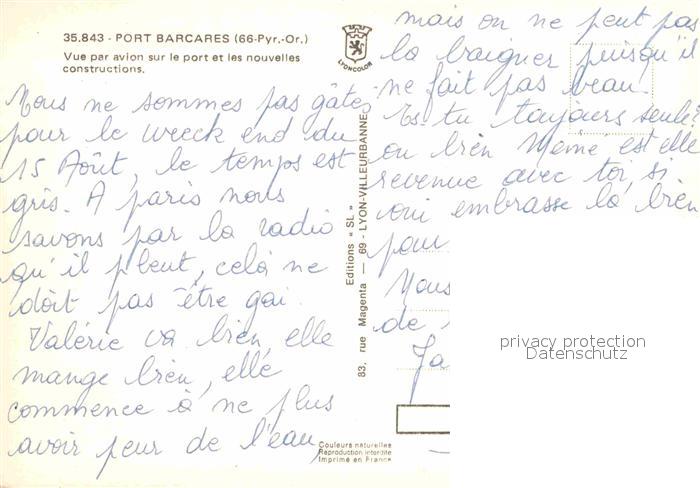 35.843 - PORT BARCARES (66-Pyr.-Or.)
Vue par avion sur le port et les nouvelles
constructions.
LYONCOLOR
Nous ne sommes pas gâtés
pour le weeck end du
15 Août, le temps est
gris. A paris nous
savons par la radio
qu'il pleut, celà ne
doit pas être gai.
Valérie va bien, elle
mange bien, elle
commence à ne plus
avoir peur de l'eau,
mais on ne peut pas
la baigner puisqu'il
ne fait pas beau.
Es tu toujours seule?
ou bien Mémé est elle
revenue avec toi, si
oui embrasse la bien
pour
Nous
de
Ja
Editions "SL"
83, rue Magenta — 69 - LYON-VILLEURBANNE
Couleurs naturelles
Reproduction interdite
Imprimé en France
privacy protection
Datenschutz